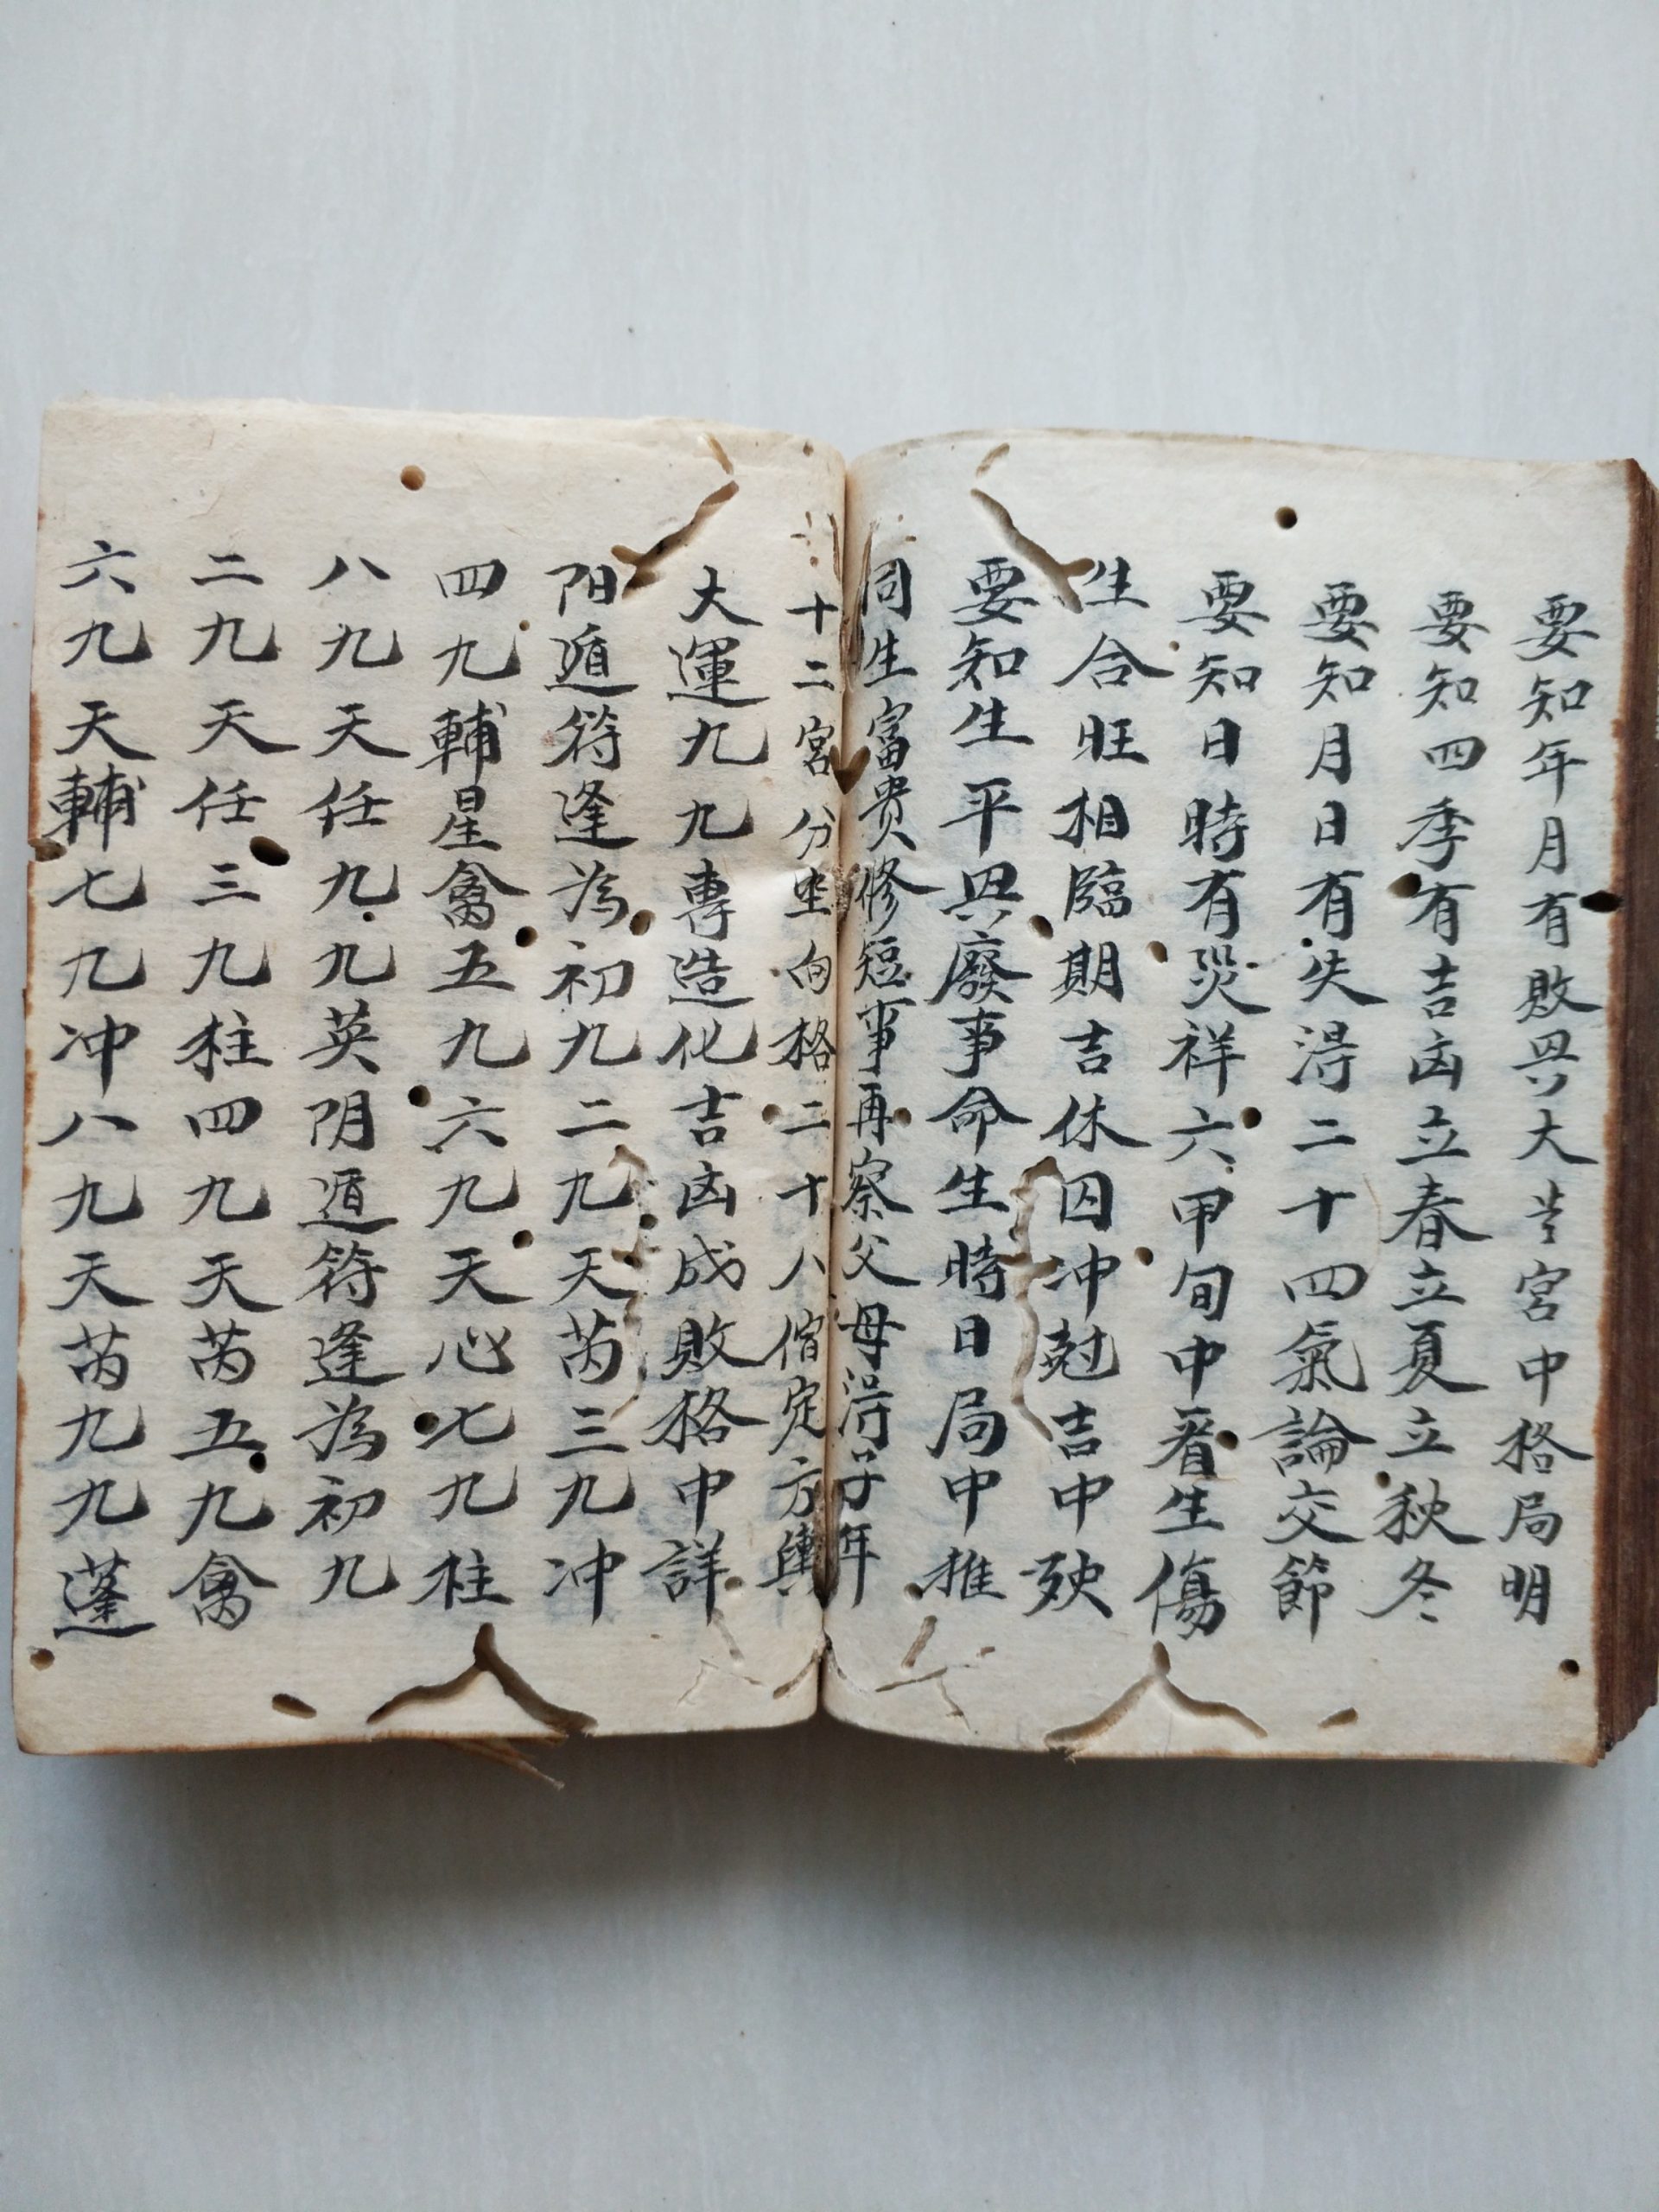 要知年月有敗兴大芸宮中格局明
要知四季有吉凶立春立夏立秋冬
要知月日有失淂二十四氣論交節
要知日時有災祥六甲旬中看生傷
生合旺相臨期吉休囚冲尅吉中殃
要知生平兴廢事命生時日局中推
同生富贵修短事再察父母淂子年
十二宮分坐向格二十八宿定方輿
大運九九專造化吉凶成敗格中詳
阳遁符逢为初九二九天芮三九冲
四九輔星禽五九六九天心七九柱
八九天任九九英阴遁符逢为初九
二九天任三九柱四九天芮五九禽
六九天輔七九冲八九天芮九九蓬